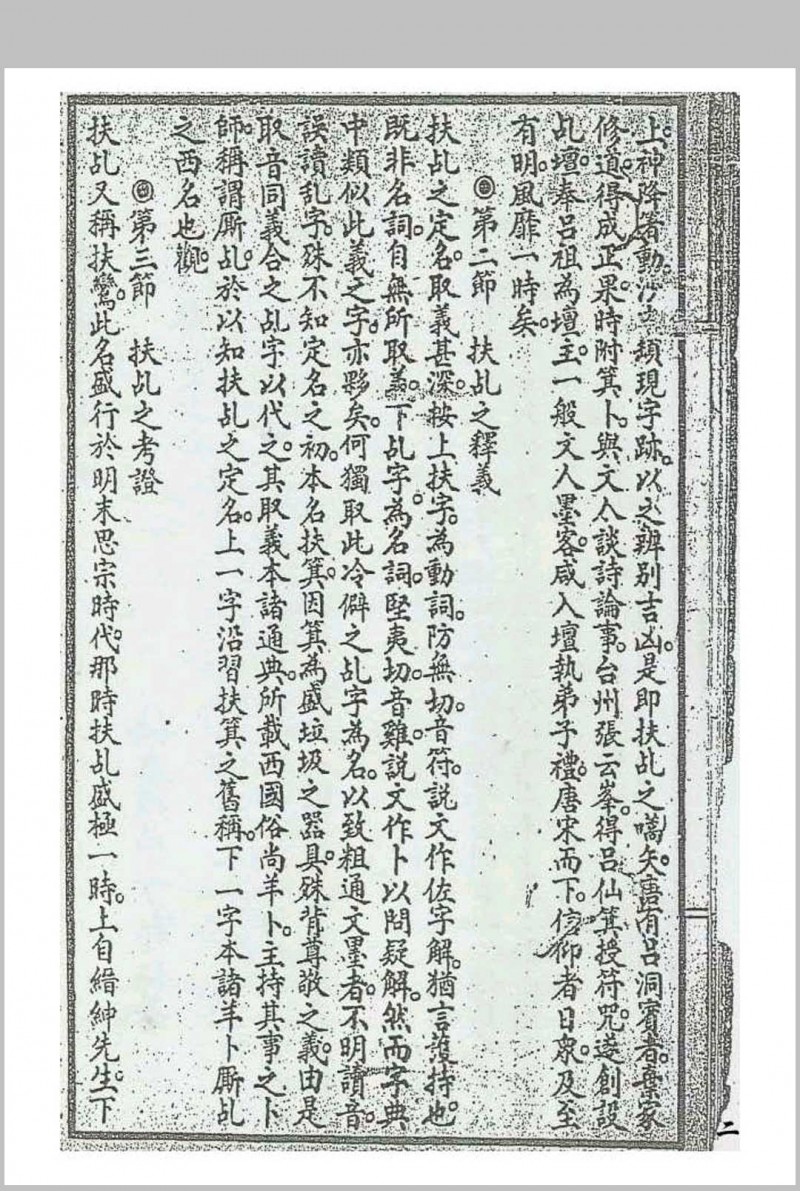 上。神降箸動。沙。頻現字跡。以之辨別吉凶。是即扶乩之嚆矢。唐有呂洞賓者。棄家
修道。得成正果。時附箕卜。與文人談詩論事。台州張云峯。得呂仙箕授符咒。遂創設
乩壇。奉呂祖為壇主。一般文人墨客。咸入壇執弟子禮。唐宋而下。信仰者日衆。及至
有明。風靡一時矣。
第二節　扶乩之釋義
扶乩之定名。取義甚深。按上扶字。為動詞。防無切。音符。說文作佐字解。猶言護持也。
既非名詞。自無所取義。下乩字。為名詞。堅夷切。音雞。說文作卜以問疑解。然而字典
中類似此義之字。亦夥矣。何獨取此冷僻之乩字為名。以致粗通文墨者。不明讀音。
誤讀乱字。殊不知定名之初。本名扶箕。因箕為盛垃圾之器具。殊背尊敬之義。由是
取音同義合之乩字以代之。其取義本諸通典。所載西國俗尚羊卜。主持其事之卜
師。稱謂厮乩。於以知扶乩之定名。上一字沿習扶箕之舊稱。下一字本諸羊卜厮乩
之西名也觀。
第三節　扶乩之考證
扶乩又稱扶鸞。此名盛行於明末思宗時代。那時扶乩盛極一時。上自縉紳先生。下
二